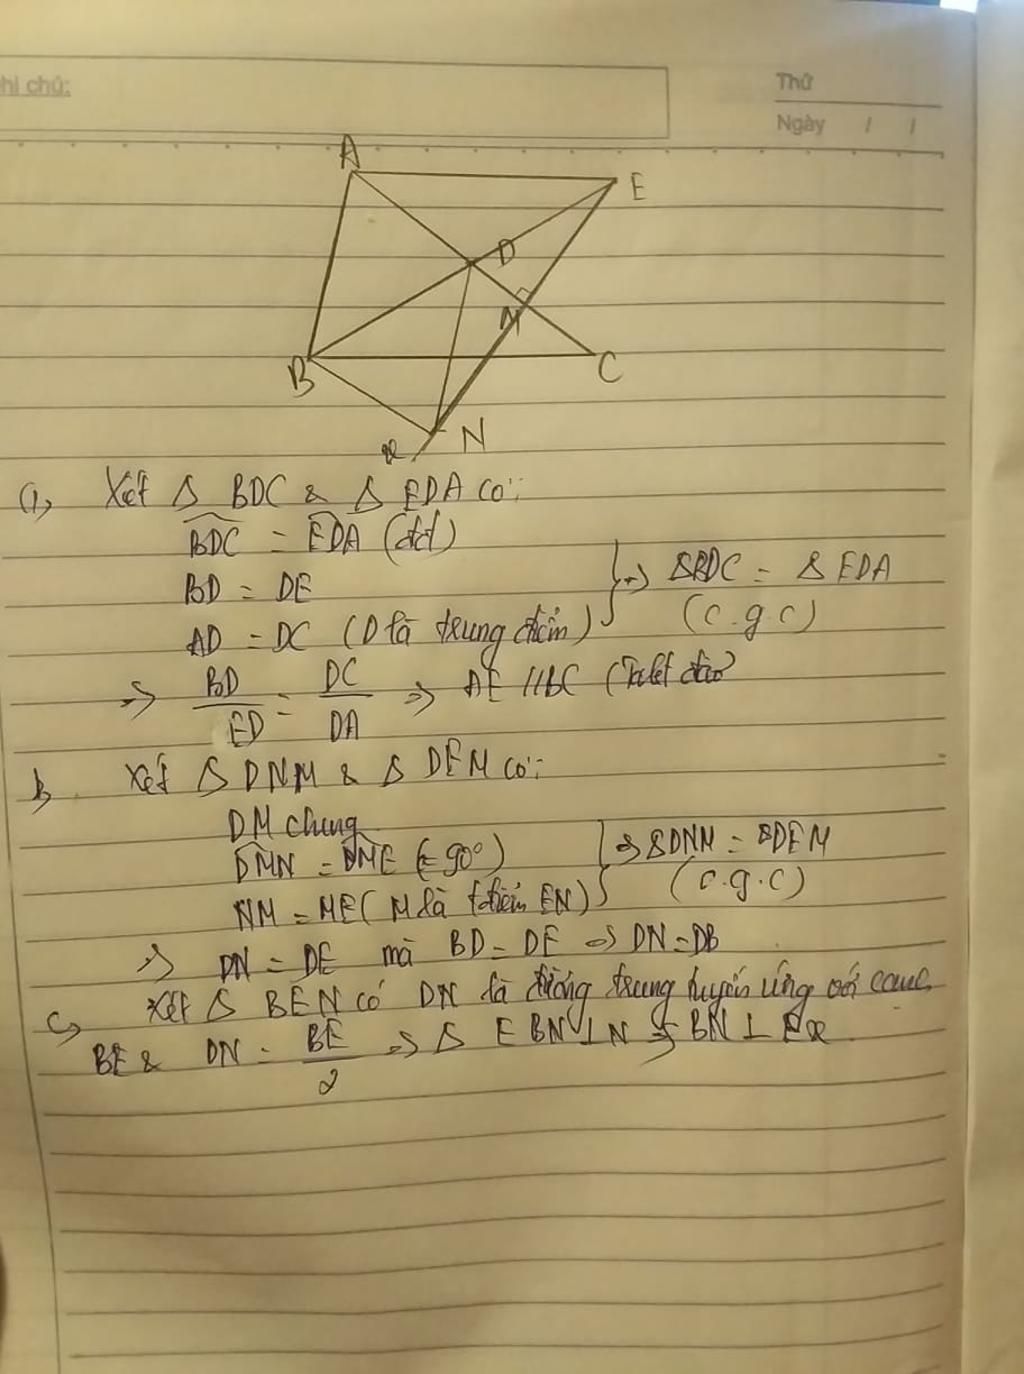 hi chú:
Thứ
Ngày / /
A
E
D
M
B
C
N
x
a, Xét Δ BDC & Δ EDA có:
BDC = EDA (đđ)
BD = DE
AD = DC (D là trung điểm)
=> ΔBDC = Δ EDA
(c.g.c)
=> BD/ED = DC/DA => AE // BC (Talet đảo
b, Xét Δ DNM & Δ DEM có:
DM chung
DMN = DME (= 90°)
NM = ME (M là tđiểm EN)
=> ΔDNM = ΔDEM
(c.g.c)
=> DN = DE mà BD = DE => DN = DB
c, Xét Δ BEN có DN là đường trung tuyến ứng với cạnh
BE & DN = BE/2 => Δ EBN ⊥ N => BN ⊥ Ex